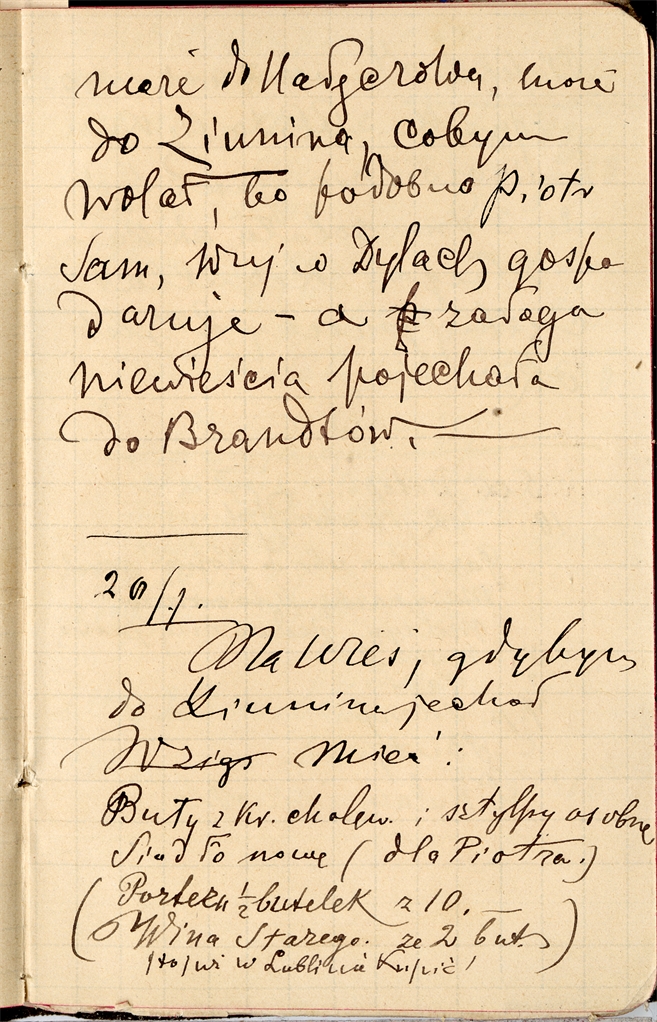 może do Nadgerołdy, może
do Ziunina, cobym
wolał, bo podobno Piotr
sam, wuj w Dylach gospo
daruje – a załoga
niewieścia pojechała
do Brandtów. —
20/1.
Na wieś, gdybym
do Ziunina jechał
Wziąć mieć:
Buty z kr. cholew. i sztylpy osobne
Siodło nowe (dla Piotra.)
(Porteru ½ butelek z 10.
Wina Starego. ze 2 but.)
w Lublinie kupić